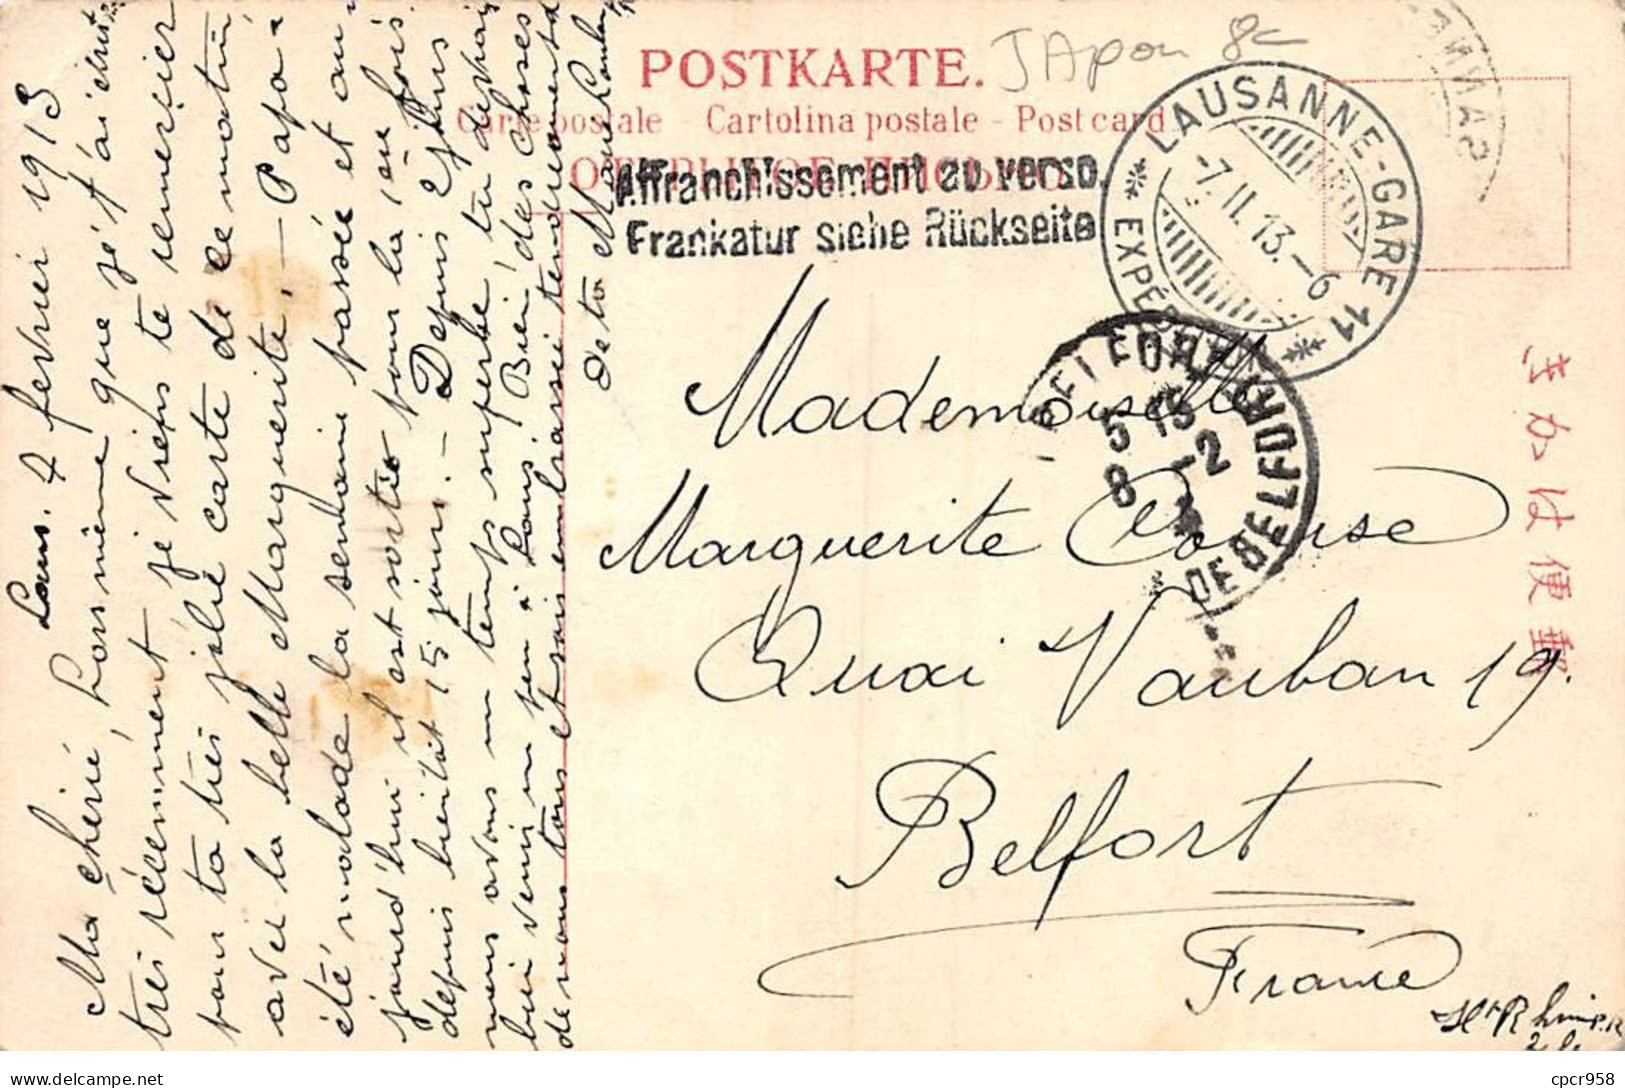 POSTKARTE.
JApon 8c
Carte postale - Cartolina postale - Post card
Affranchissement au verso.
Frankatur siehe Rückseite
LAUSANNE-GARE 11
-7.II.13.-6
BELFORT
5 15
8 -2
DE BELFORT
きかは便郵
Laus. 7 fevrier 1913
Ma chérie, hors même que je t'ai écrit
très récemment, je viens te remercier
pour ta très jolie carte de ce matin
avec la belle Marguerite. — Papa a
été malade la semaine passée et au-
jourd'hui il est sorti pour la 1ère fois
depuis bientôt 15 jours. — Depuis 2 jours
nous avons un temps superbe, tu devrais
bien venir un peu à Laus. Bien des choses
de nous tous et sois embrassée tendrement
De ta
Mademoiselle
Marguerite Course
Quai Vauban 19.
Belfort
France
cpcr958